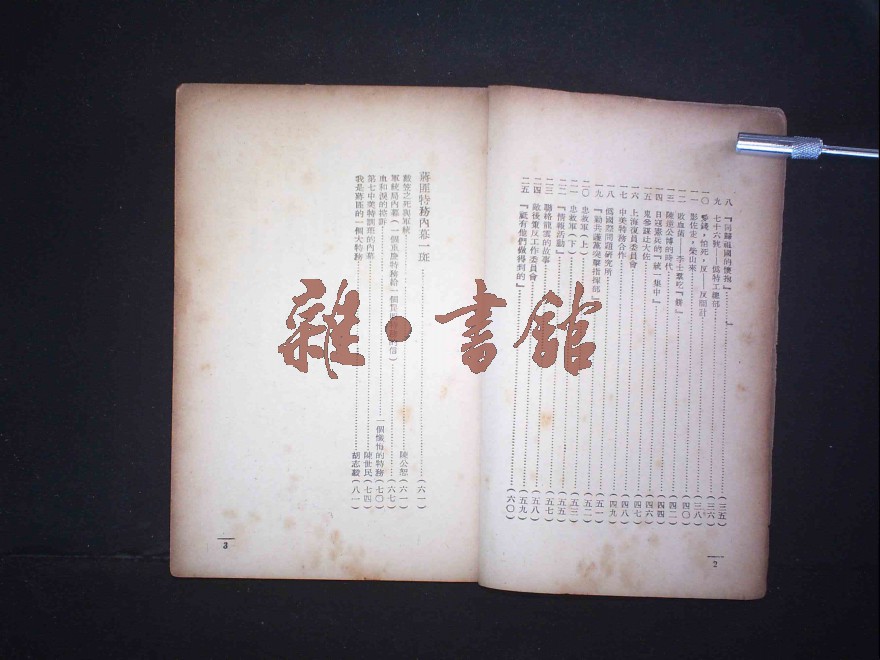 八 『同歸祖國的懷抱』……(三五)
九 七十六號——偽特工總部……(三六)
一〇 愛錢，怕死，反——反間計……(三八)
一一 影佐史，榮山來……(四〇)
一二 吃血菌——李士羣吃『餅』……(四二)
一三 陳逆公博的時代……(四四)
一四 日寇憲兵的『統一集中』……(四四)
一五 鬼參謀辻大佐……(四六)
一六 上海復員委員會……(四七)
一七 中美特務合作……(四八)
一八 俄國亞問題研究所……(四九)
一九 『勦共護黨突擊指揮部』……(五一)
二〇 忠救軍(上)……(五二)
二一 忠救軍(下)……(五三)
二二 『情報活動』……(五五)
二三 勒絡龍雲的故事……(五七)
二四 敵後重反工作委員會……(五八)
二五 『祇有他們做得到的』……(六〇)
2
蔣匪特務內幕一斑……(六一)
戴笠之死與軍統……陳公恕(六一)
軍統局內幕(一個重慶特務給一個 的信)……(六七)
血和淚的控訴……一個懺悔的特務(七〇)
第七中美特訓班的內幕……陳世民(七四)
我是蔣匪的一個大特務……胡志毅(八一)
3
雜・書館